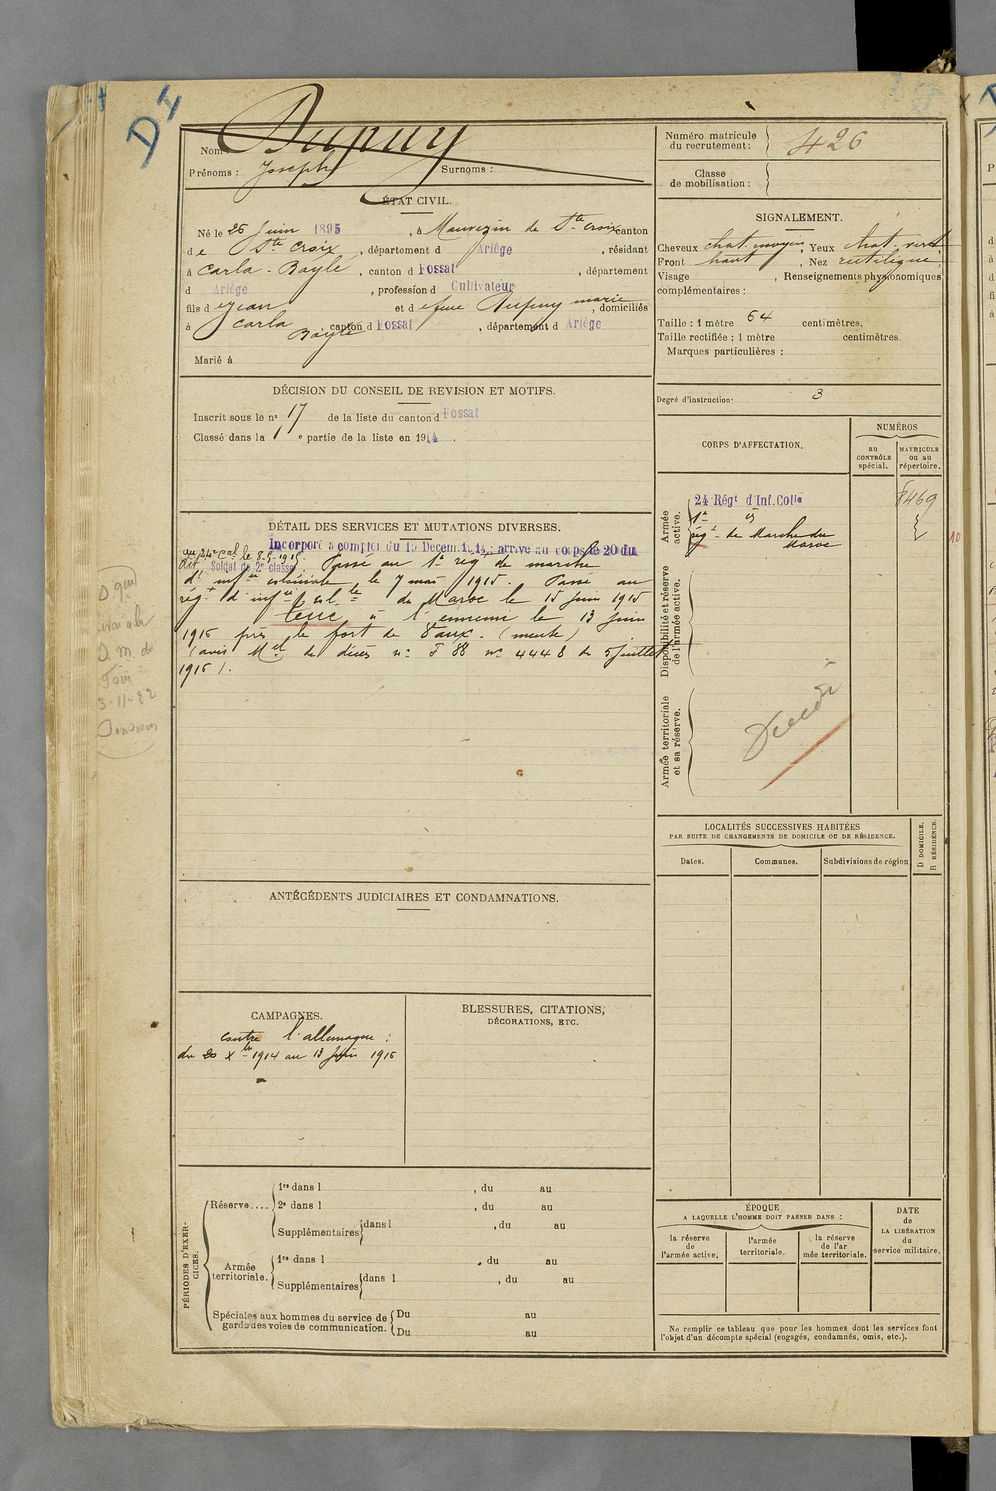 D I
Nom : Dupuy
Prénoms : Joseph Surnoms :
Numéro matricule
du recrutement : 426
Classe
de mobilisation :
ÉTAT CIVIL.
Né le 26 Juin 1895, à Mauvezin de Ste Croix canton
de Ste Croix, département d Ariège, résidant
à Carla-Bayle, canton d Fossat, département
d Ariège, profession d Cultivateur
fils d Jean et d Dupuy marie, domiciliés
à Carla Bayle, canton d Fossat, département d Ariège
Marié à
SIGNALEMENT.
Cheveux chat. moyen, Yeux chat. vert
Front haut, Nez rectiligne
Visage , Renseignements physionomiques
complémentaires :
Taille : 1 mètre 64 centimètres.
Taille rectifiée : 1 mètre centimètres.
Marques particulières :
Degré d'instruction : 3
DÉCISION DU CONSEIL DE REVISION ET MOTIFS.
Inscrit sous le no 17 de la liste du canton d Fossat
Classé dans la 1e partie de la liste en 1914.
CORPS D'AFFECTATION.
NUMÉROS
au
CONTRÔLE
spécial.
MATRICULE
ou au
répertoire.
Armée
active.
24 Régt d'Inf. Colle
8469
régt de Marche du
Maroc
10
Disponibilité et réserve
de l'armée active.
Armée territoriale
et sa réserve.
Décédé
DÉTAIL DES SERVICES ET MUTATIONS DIVERSES.
Incorporé à compter du 15 Décem. 1914; arrivé au corps le 20 du
dit, Soldat de 2e classe. Passé au 1er régt de marche
au 24e Cal le 8.5.1915.
d'infie coloniale le 7 mai 1915. Passé au
régt d'infie col.le du Maroc le 15 Juin 1915
tué à l'ennemi le 13 Juin
1916 près le fort de Vaux. (meuse)
(avis Mel de décès no F 88 no 4448 du 5 Juillet
1916).
3-11-22
ANTÉCÉDENTS JUDICIAIRES ET CONDAMNATIONS.
LOCALITÉS SUCCESSIVES HABITÉES
PAR SUITE DE CHANGEMENTS DE DOMICILE OU DE RÉSIDENCE.
Dates.
Communes.
Subdivisions de région
D DOMICILE.
R RÉSIDENCE.
CAMPAGNES.
contre l'allemagne :
du 20 Xbre 1914 au 13 Juin 1916
BLESSURES, CITATIONS,
DÉCORATIONS, ETC.
PÉRIODES D'EXER-
CICES.
Réserve....
1re dans l , du au
2e dans l , du au
Supplémentaires dans l , du au
Armée
territoriale.
1re dans l , du au
Supplémentaires dans l , du au
Spéciales aux hommes du service de
garde des voies de communication.
Du au
Du au
ÉPOQUE
A LAQUELLE L'HOMME DOIT PASSER DANS :
la réserve
de
l'armée active.
l'armée
territoriale.
la réserve
de l'ar
mée territoriale.
DATE
de
LA LIBÉRATION
du
service militaire.
Ne remplir ce tableau que pour les hommes dont les services font
l'objet d'un décompte spécial (engagés, condamnés, omis, etc.).